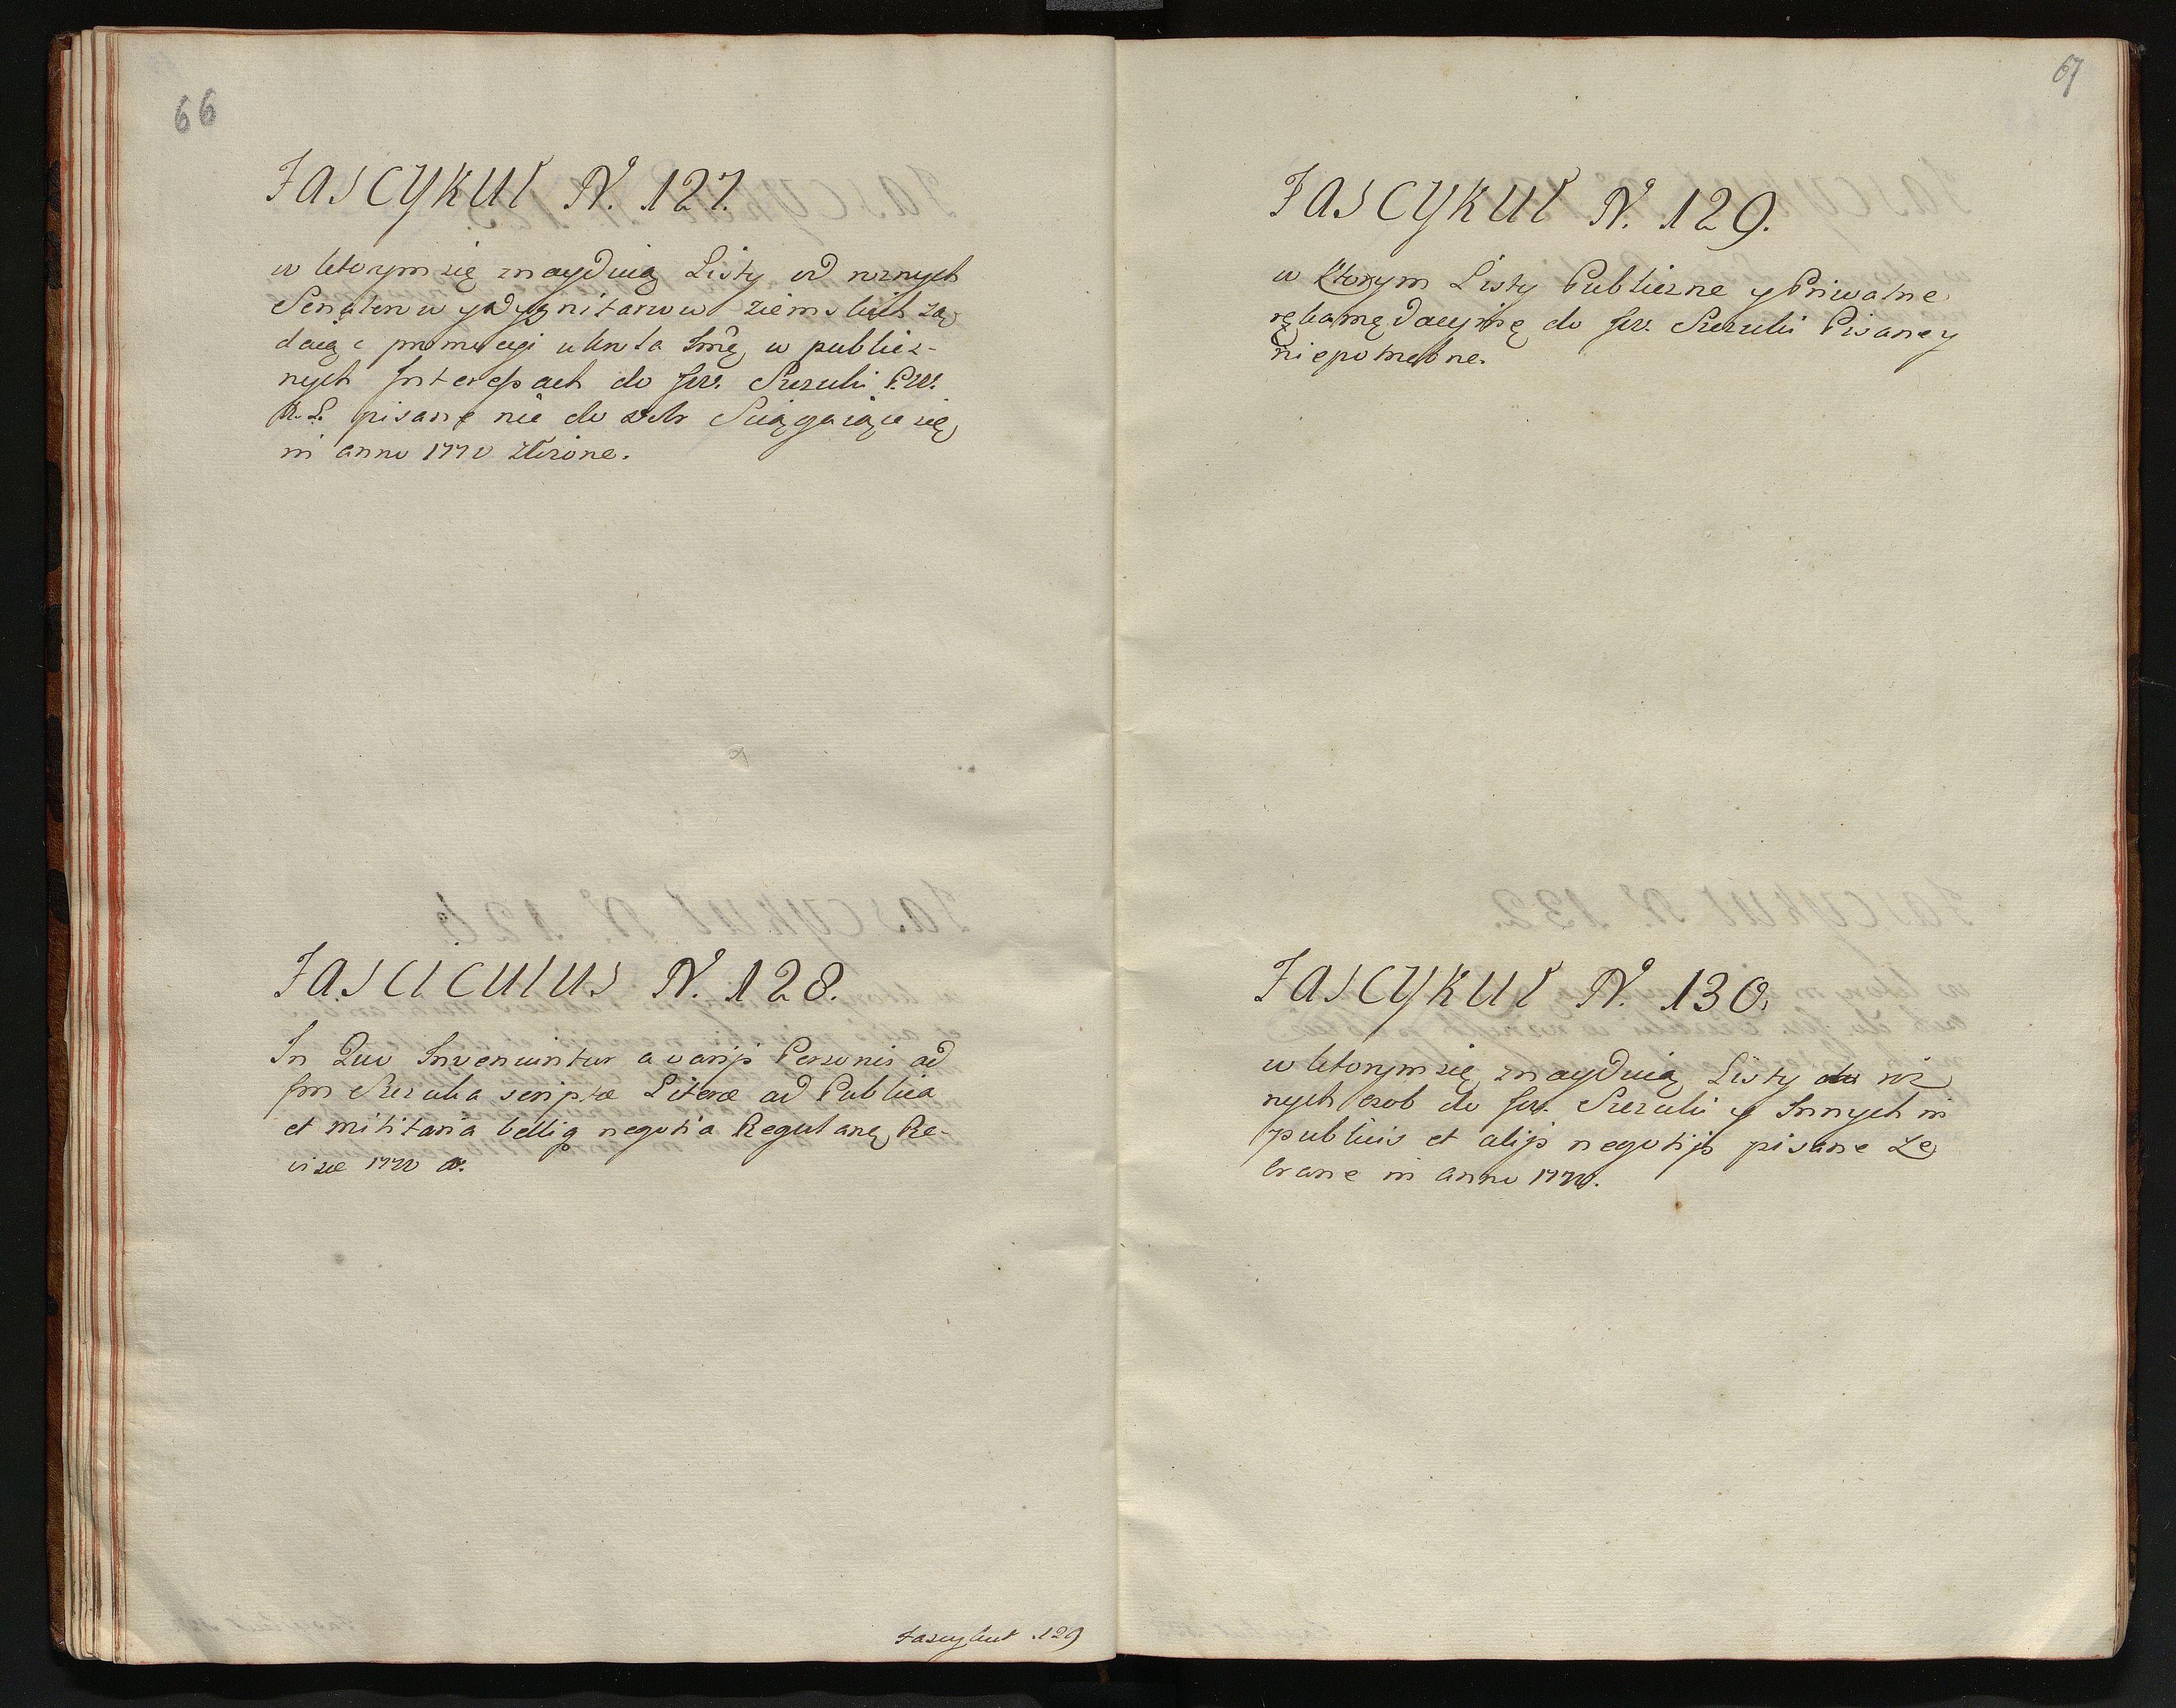 66
Fascykuł N. 127.
w ktorym się znayduią Listy od roznych
Senatorow y Dygnitarzow ziemskich żą
daią c promocyi u Krola Jmę w publicz-
nych Interessach do Jw. Szczuki P.W.
X. L. pisane nie do dobr Sciągaiące się
in anno 1770 złożone.
Fasciculus N. 128.
In Quo Inveniuntur a varijs Personis ad
Jm Szczuka scriptæ Literæ ad Publica
et militaria bellig negotia Regulanę Re-
visæ 1770 a.
Fascykuł .129
67
Fascykuł N. 129.
w ktorym Listy Publiczne y Priwatne
rękomędacyinę do Jw. Szczuki Pisane y
niepotrzebne.
Fascykuł N. 130.
w ktorym się znayduią Listy od roz
nych osob do Jw. Szczuki y Innych in
publicis et alijs negotijs pisane Ze
brane in anno 1770.